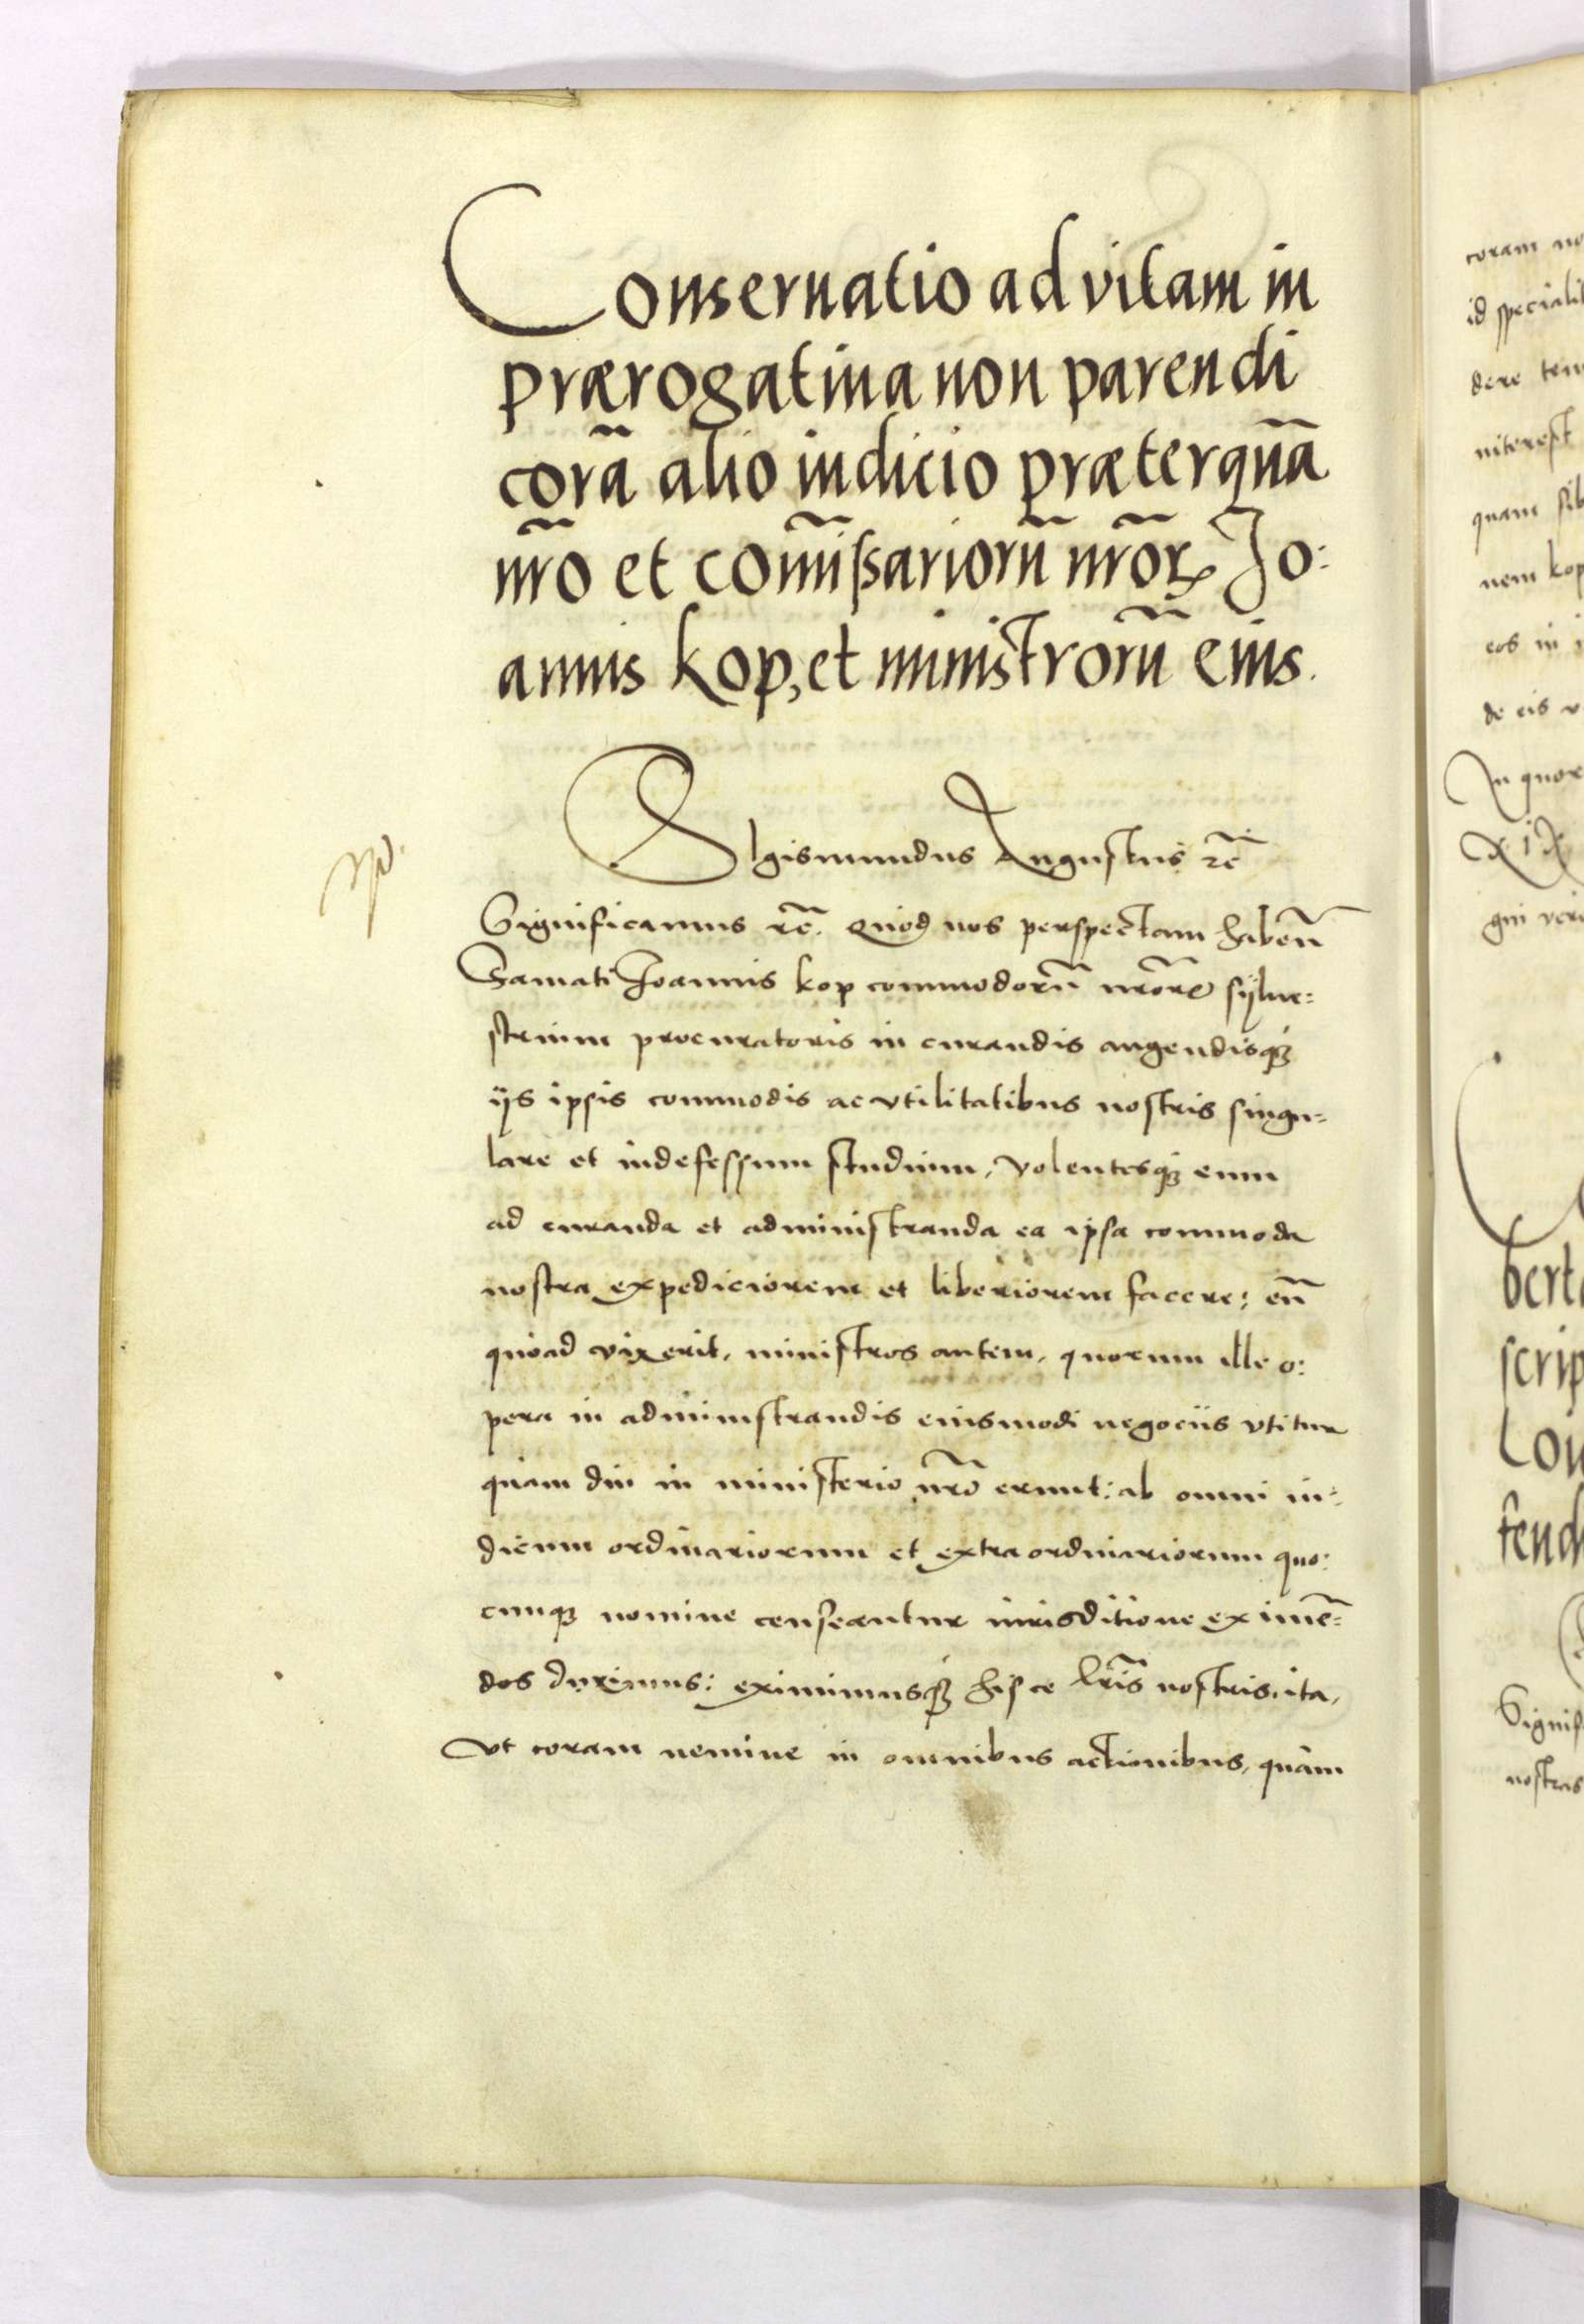 Conseruatio ad vitam in
prærogatiua non parendi
corā alio iudicio præterquā
nr̄o et com̄issariorū nr̄oꝝ Jo:
annis kop, et ministrorū eius.
SIgismundus Augustus rc̄
Significamus rc̄. Quod nos perspectam haben̄
Famati Joannis kop commodorū nr̄orꝝ sylue:
strium procuratoris in curandis augendisqꝫ
ijs ipsis commodis ac vtilitatibus nostris singu:
lare et indefessum studium, volentesqꝫ eum
ad curanda et administranda ea ipsa commoda
nostra expediciorem et liberiorem facere; eū
quoad vixerit, ministros autem, quorum ille o:
pera in administrandis eiusmodi negociis vtitur
quam diu in ministerio nr̄o erunt: ab omni iu:
dicum ordinariorum et extraordinariorum quo:
cunqꝫ nomine censeantur iurisditione eximē:
dos duximus: eximimusqꝫ hisce lr̄is nostris. ita,
Vt coram nemine in omnibus actionibus, quam
coram no
id speciali
dere ten
niterest
quam sib
nem kop
eos in i
de eis v
In quor
XIX
gni veri
berta
scrip
Lou
tend
Signif
nostras